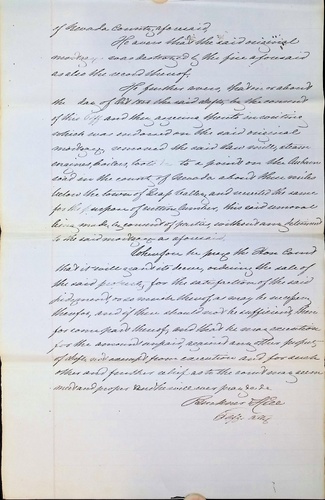 of Nevada County, aforesaid,
He avers that the said original
mortgage was destroyed by the fire aforesaid
as also the record thereof.
He further avers, that on or about
the day of the said deft by the consent
of this plff and their assignee thereto in writing
which was endorsed on the said original
mortgage removed the said saw mill, steam
engines, boilers, tools to a point on the Auburn
road in the county of Nevada about three miles
below the town of Grass Valley, and erected the same
for the purpose of cutting lumber, this said removal
being made by consent of parties, without any detriment
to the said mortgage as aforesaid
Wherefore he prays the Hon Court
that it will grant its decree, ordering the sale of
the said property for the satisfaction of the said
judgment, or so much thereof as may be necessary
therefor, and if there should not be sufficient then
for complaint thereof, and that he may execution
for the amount unpaid against any other property
of defts not exempt from execution and for such
other and further relief as to the court may seem
meet and proper and he will ever pray &c
Plffs Atty